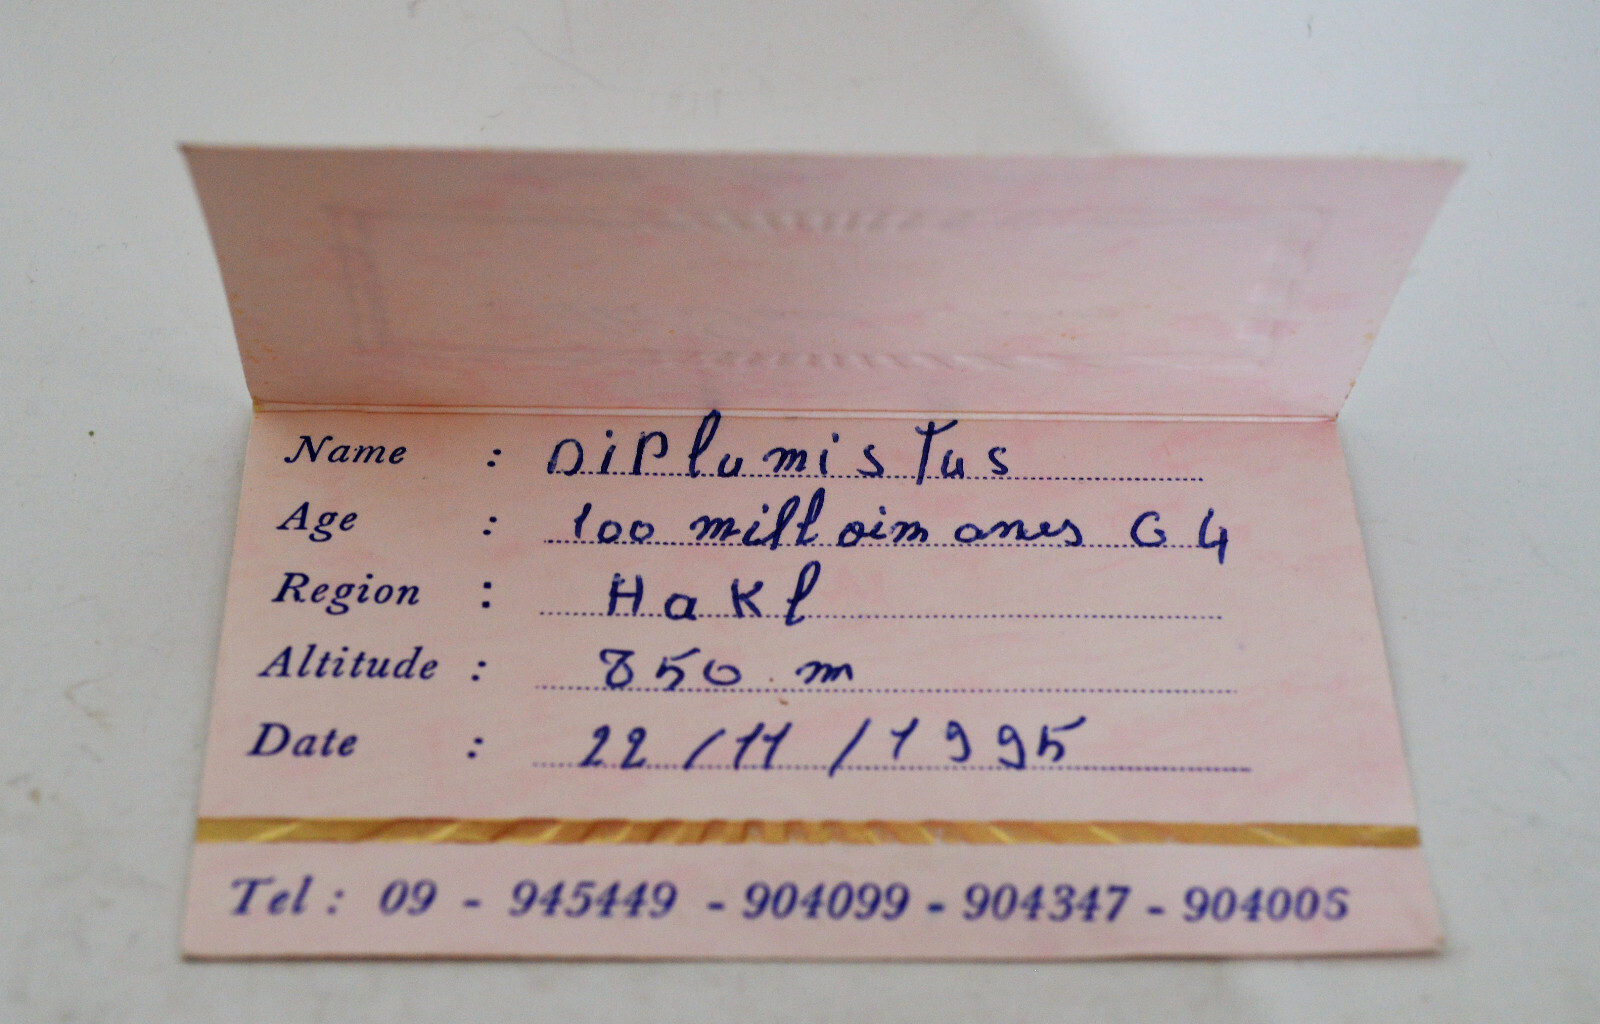 Name : Diplumistus
Age : 100 milloim anes G 4
Region : Hakl
Altitude : 850 m
Date : 22/11/1995
Tel : 09 - 945449 - 904099 - 904347 - 904005